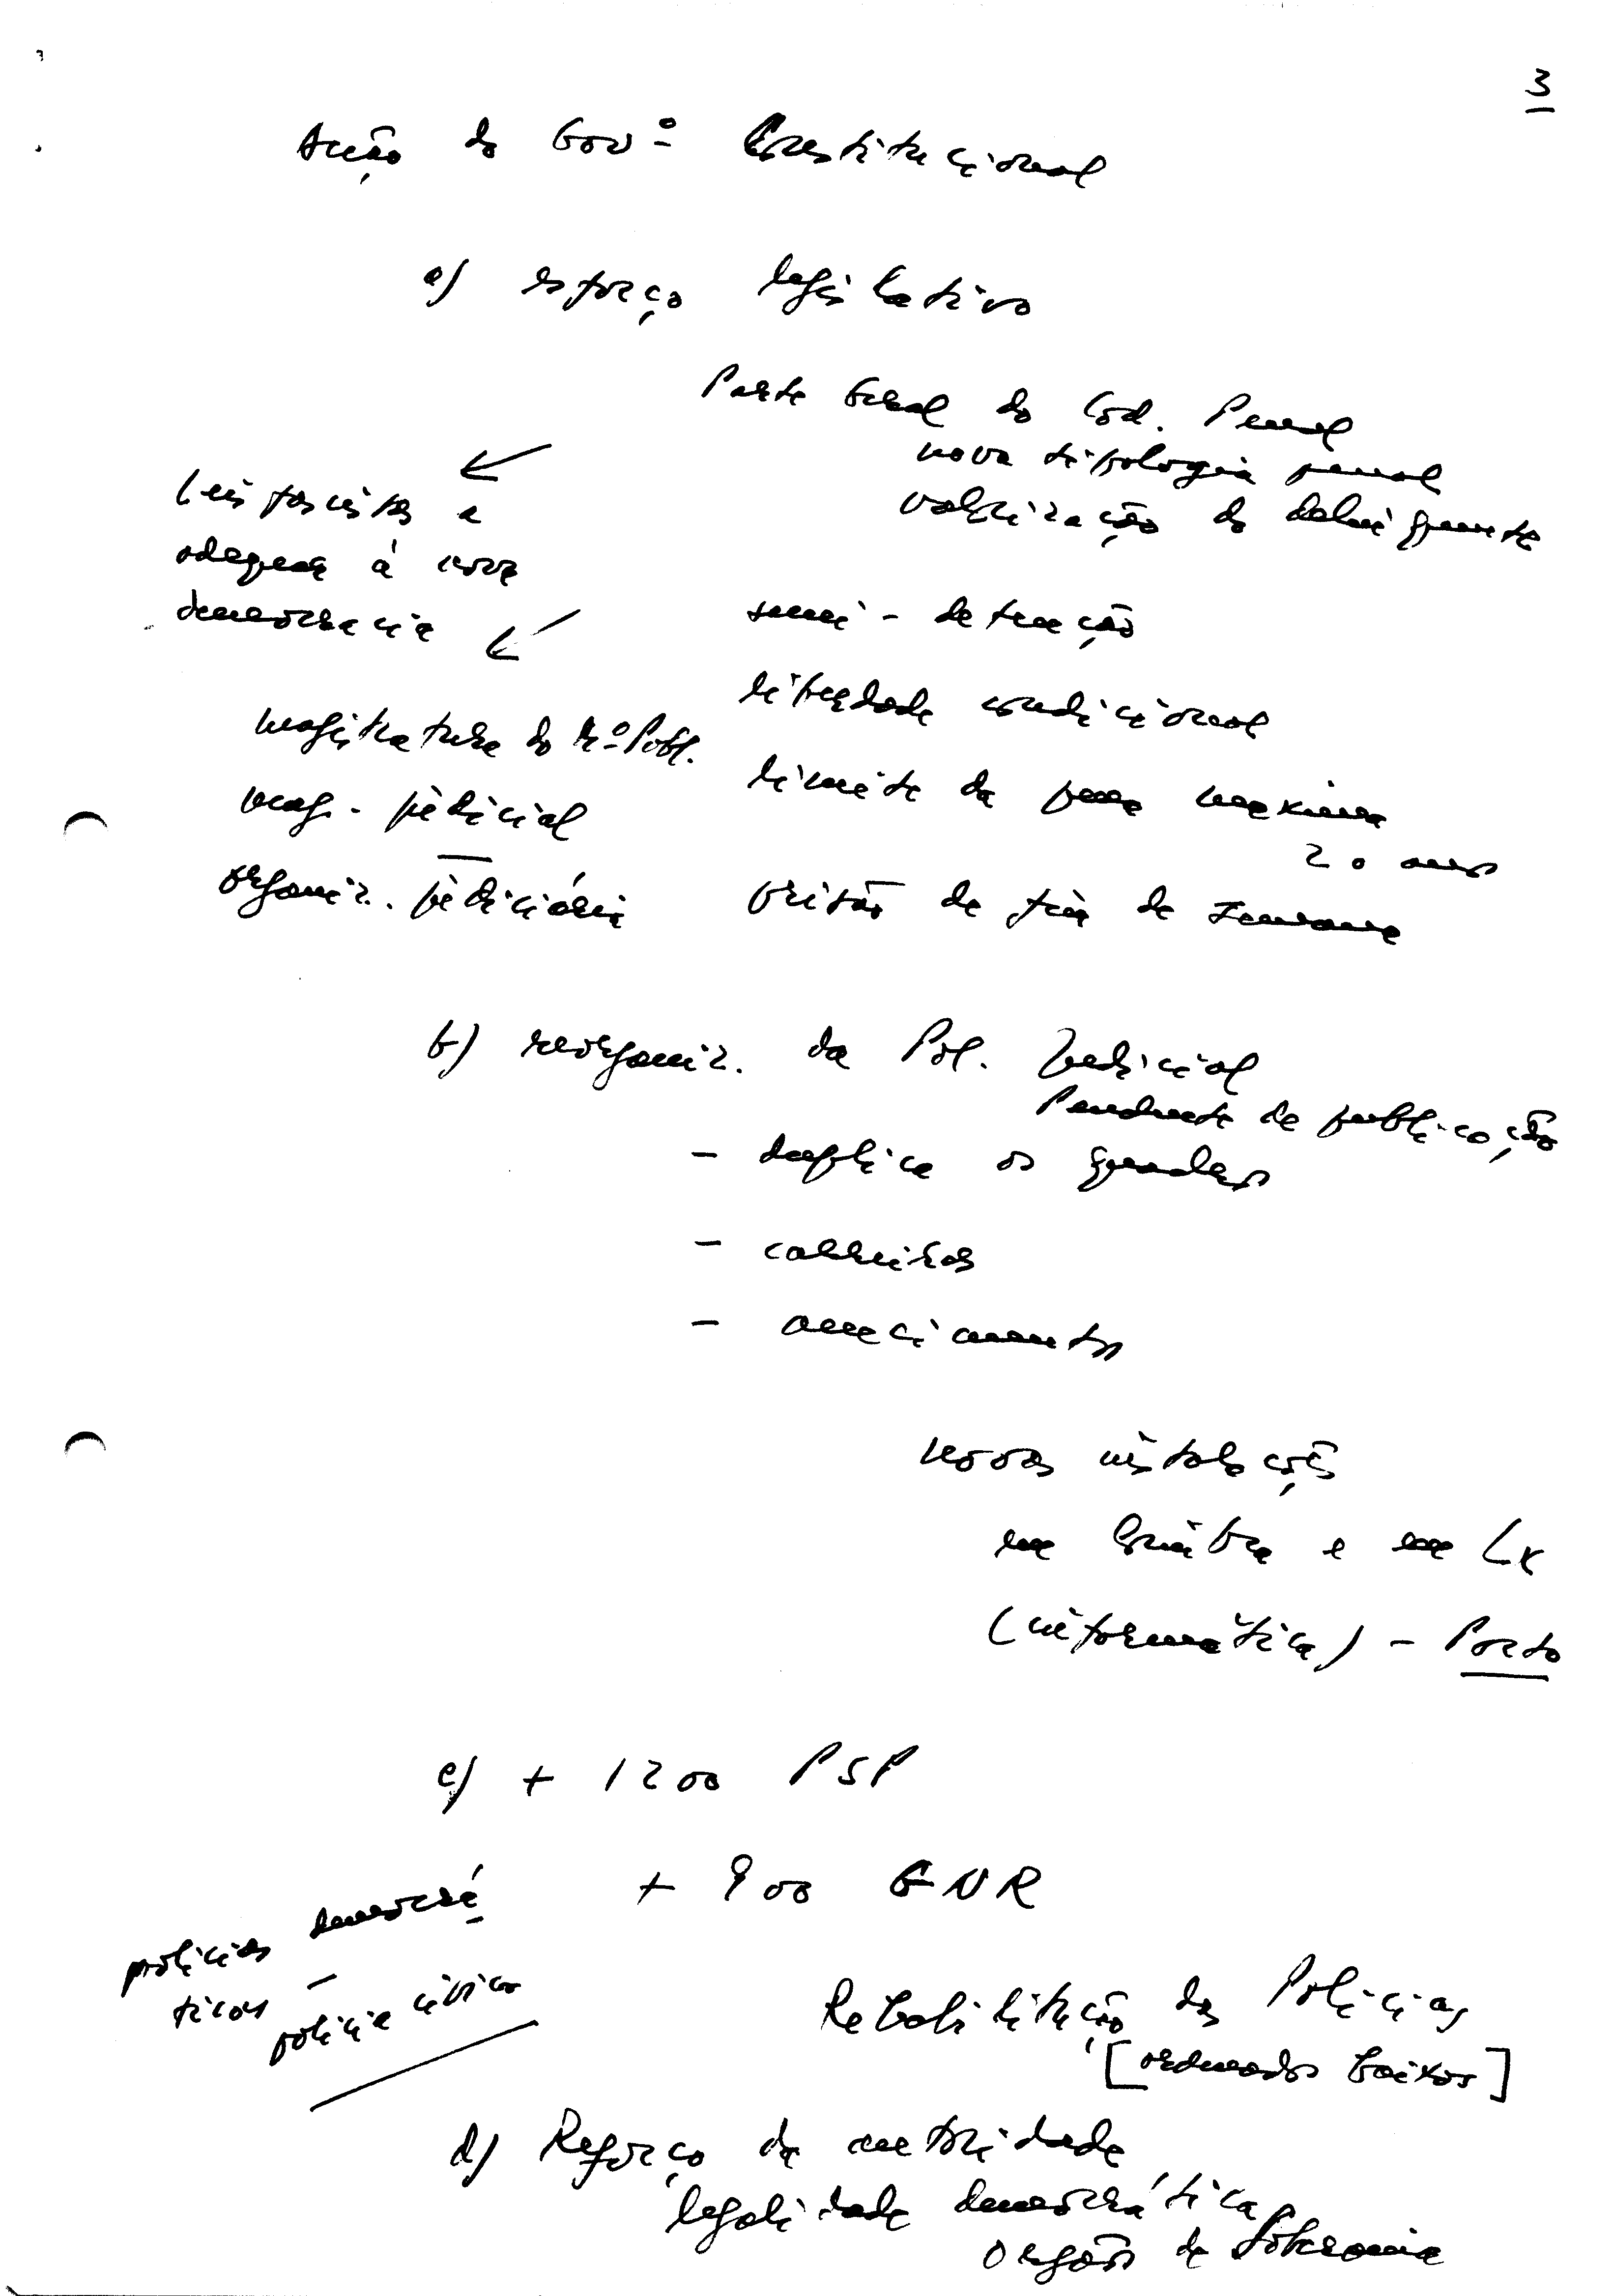 3
Acção do Govº Constitucional
a) esforço legislativo
Parte Geral do Cód. Penal
nova tipologia penal
valorização do delinquente
Leis fascistas a
adequar à nova
democracia
semi-detenção
liberdade condicional
magistratura do Mº Públ.
limite da pena máxima
20 anos
mag. judicial
organiz. judiciária
prisão de fim de semana
b) reorganiz. da Pol. Judicial
Pendente de publicação
- duplica os quadros
- carreiras
- vencimentos
novas instalações
em Coimbra e em Lx
(informática) - Porto
c) + 1200 PSP
+ 900 GNR
polícias democrá
ticas - polícia cívica
Reabilitação das Polícias
[ordenados baixos]
d) Reforço da autoridade
legalidade democrática
orgãos de Soberania